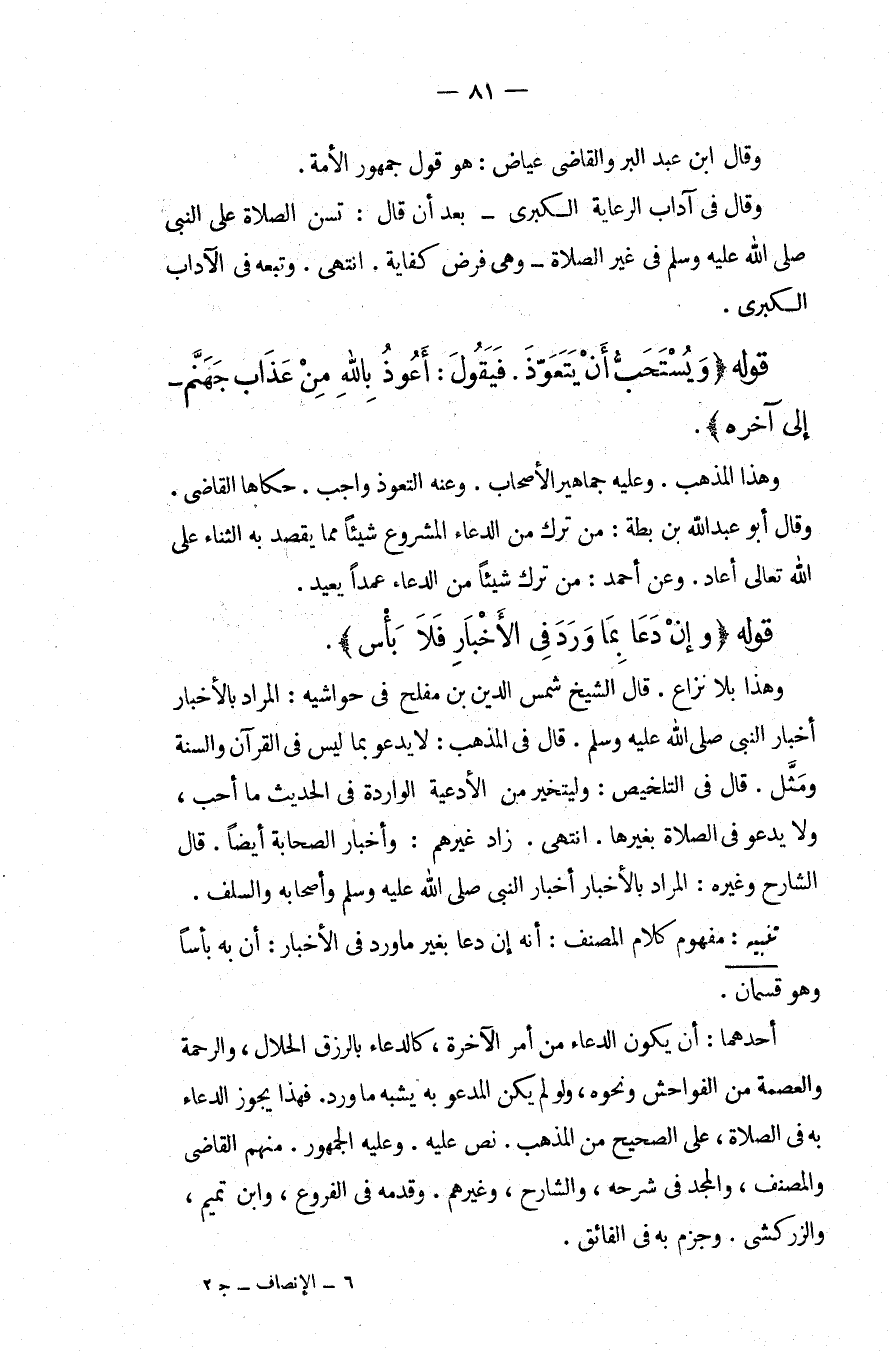 — ٨١ —
وقال ابن عبد البر والقاضى عياض : هو قول جمهور الأمة .
وقال فى آداب الرعاية الكبرى – بعد أن قال : تسن الصلاة على النبى
صلى الله عليه وسلم فى غير الصلاة – وهى فرض كفاية . انتهى . وتبعه فى الآداب
الكبرى .
قوله ﴿ وَيُسْتَحَبُّ أَنْ يَتَعَوَّذَ . فَيَقُولَ : أَعُوذُ بِاللهِ مِنْ عَذَابِ جَهَنَّمَ –
إلى آخره ﴾ .
وهذا المذهب . وعليه جماهير الأصحاب . وعنه التعوذ واجب . حكاها القاضى .
وقال أبو عبدالله بن بطة : من ترك من الدعاء المشروع شيئاً مما يقصد به الثناء على
الله تعالى أعاد . وعن أحمد : من ترك شيئاً من الدعاء عمداً يعيد .
قوله ﴿ و إنْ دَعَا بِمَا وَرَدَ فِى الأَخْبَارِ فَلَا بَأْس ﴾ .
وهذا بلا نزاع . قال الشيخ شمس الدين بن مفلح فى حواشيه : المراد بالأخبار
أخبار النبى صلى الله عليه وسلم . قال فى المذهب : لايدعو بما ليس فى القرآن والسنة
ومَثَّل . قال فى التلخيص : وليتخير من الأدعية الواردة فى الحديث ما أحب ،
ولا يدعو فى الصلاة بغيرها . انتهى . زاد غيرهم : وأخبار الصحابة أيضاً . قال
الشارح وغيره : المراد بالأخبار أخبار النبى صلى الله عليه وسلم وأصحابه والسلف .
تنبيه : مفهوم كلام المصنف : أنه إن دعا بغير ماورد فى الأخبار : أن به بأساً
وهو قسمان .
أحدهما : أن يكون الدعاء من أمر الآخرة ، كالدعاء بالرزق الحلال ، والرحمة
والعصمة من الفواحش ونحوه ، ولو لم يكن المدعو به يشبه ماورد. فهذا يجوز الدعاء
به فى الصلاة ، على الصحيح من المذهب . نص عليه . وعليه الجمهور . منهم القاضى
والمصنف ، والمجد فى شرحه ، والشارح ، وغيرهم . وقدمه فى الفروع ، وابن تميم ،
والزركشى . وجزم به فى الفائق .
٦ – الإنصاف – ج ٢